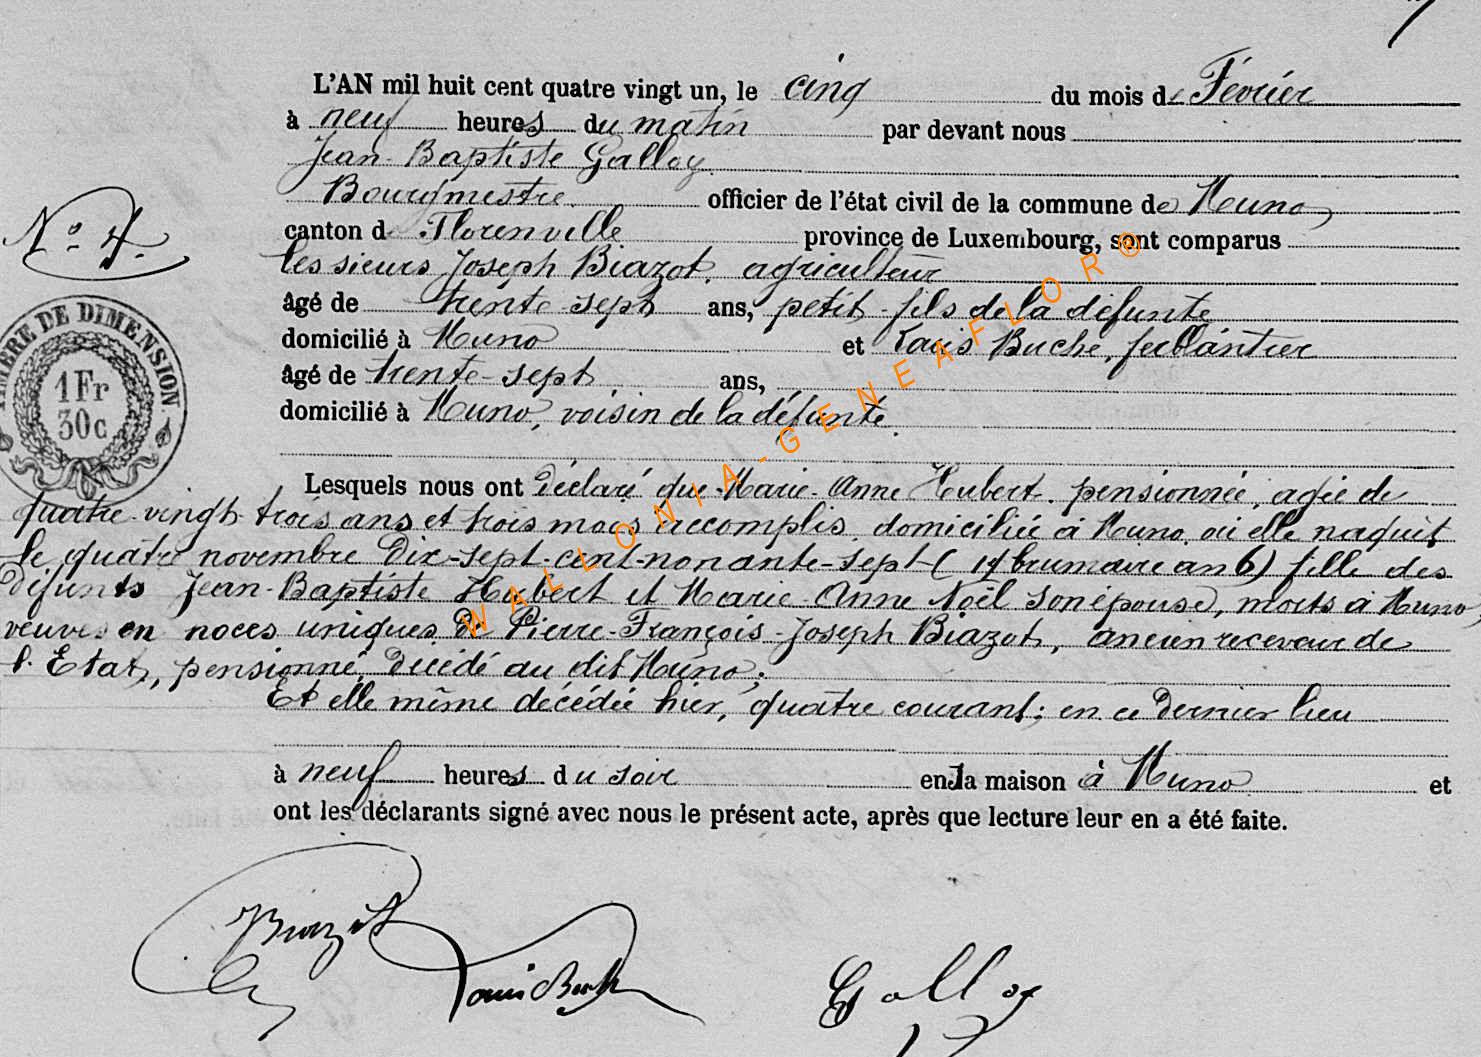 L'AN mil huit cent quatre vingt un, le cinq du mois de Février
à neuf heures du matin par devant nous
Jean-Baptiste Galloy
Bourgmestre officier de l'état civil de la commune de Muno,
N° 4.
canton de Florenville province de Luxembourg, sont comparus
les sieurs Joseph Biazot, agriculteur
âgé de trente-sept ans, petit-fils de la défunte
domicilié à Muno et Louis Buche, ferblantier
TIMBRE DE DIMENSION.
1 Fr
30c
âgé de trente-sept ans,
domicilié à Muno, voisin de la défunte.
Lesquels nous ont déclaré que Marie-Anne Hubert, pensionnée, agée de
quatre-vingt-trois ans et trois mois accomplis, domiciliée à Muno, où elle naquit
le quatre novembre dix-sept-cent-nonante-sept (14 brumaire an 6) fille des
défunts Jean-Baptiste Hubert et Marie-Anne Noël son épouse, morts à Muno,
veuve en noces uniques de Pierre-François-Joseph Biazot, ancien receveur de
l'Etat, pensionné, décédé au dit Muno;
Et elle même décédée hier, quatre courant; en ce dernier lieu
à neuf heures du soir en la maison à Muno et
ont les déclarants signé avec nous le présent acte, après que lecture leur en a été faite.
Biazot
Louis Buche
Galloy
WALLONIA-GENEAFLOR®